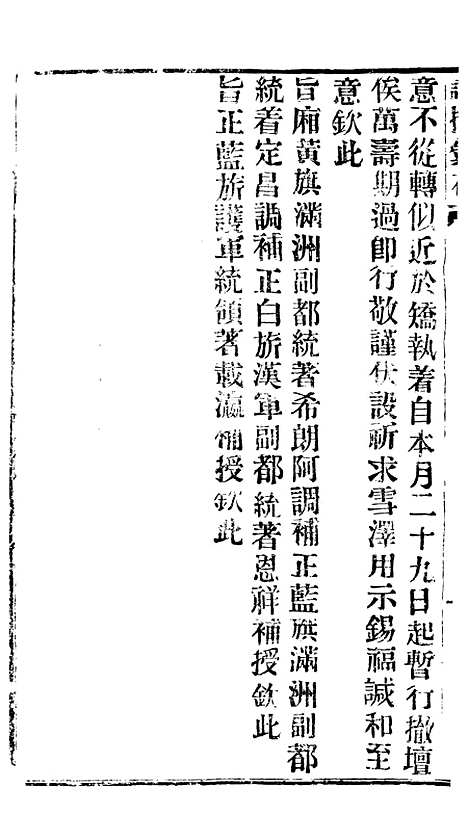 意不從轉似近於矯執着自本月二十九日起暫行撤壇
俟萬壽期過卽行敬謹伏設祈求雪澤用示錫福諴和至
意欽此
旨廂黃旗滿洲副都統著希朗阿調補正藍旗滿洲副都
統着定昌調補正白旂漢軍副都統著恩祥補授欽此
旨正藍旂護軍統領著載瀛補授欽此